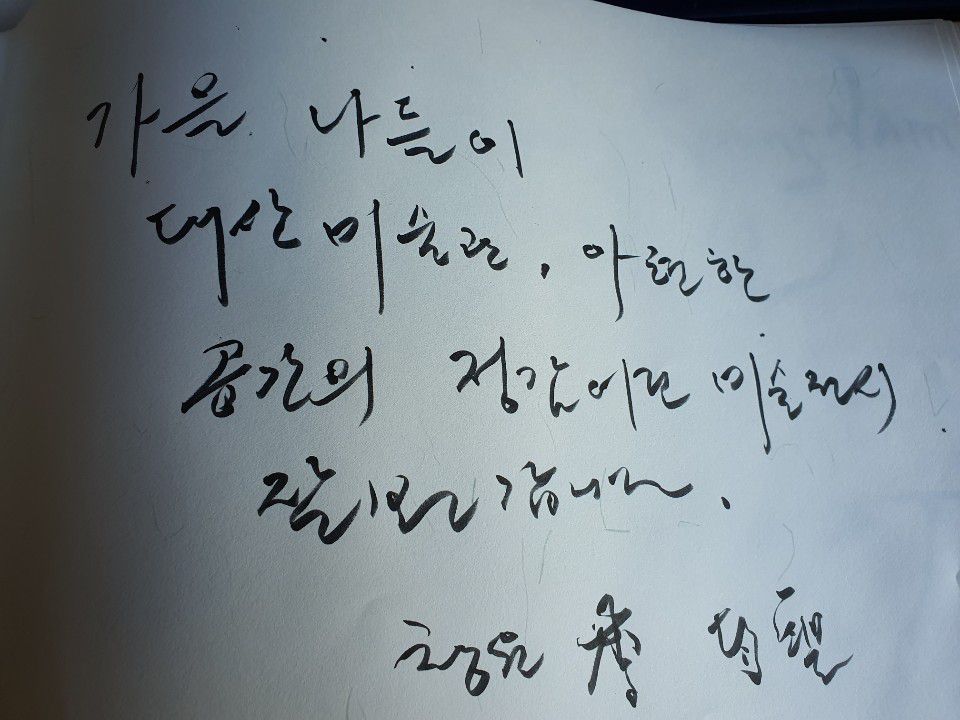 가을 나들이
대산미술관, 아련한
공간의 정감어린 미술전시
잘 보고 갑니다.
창원